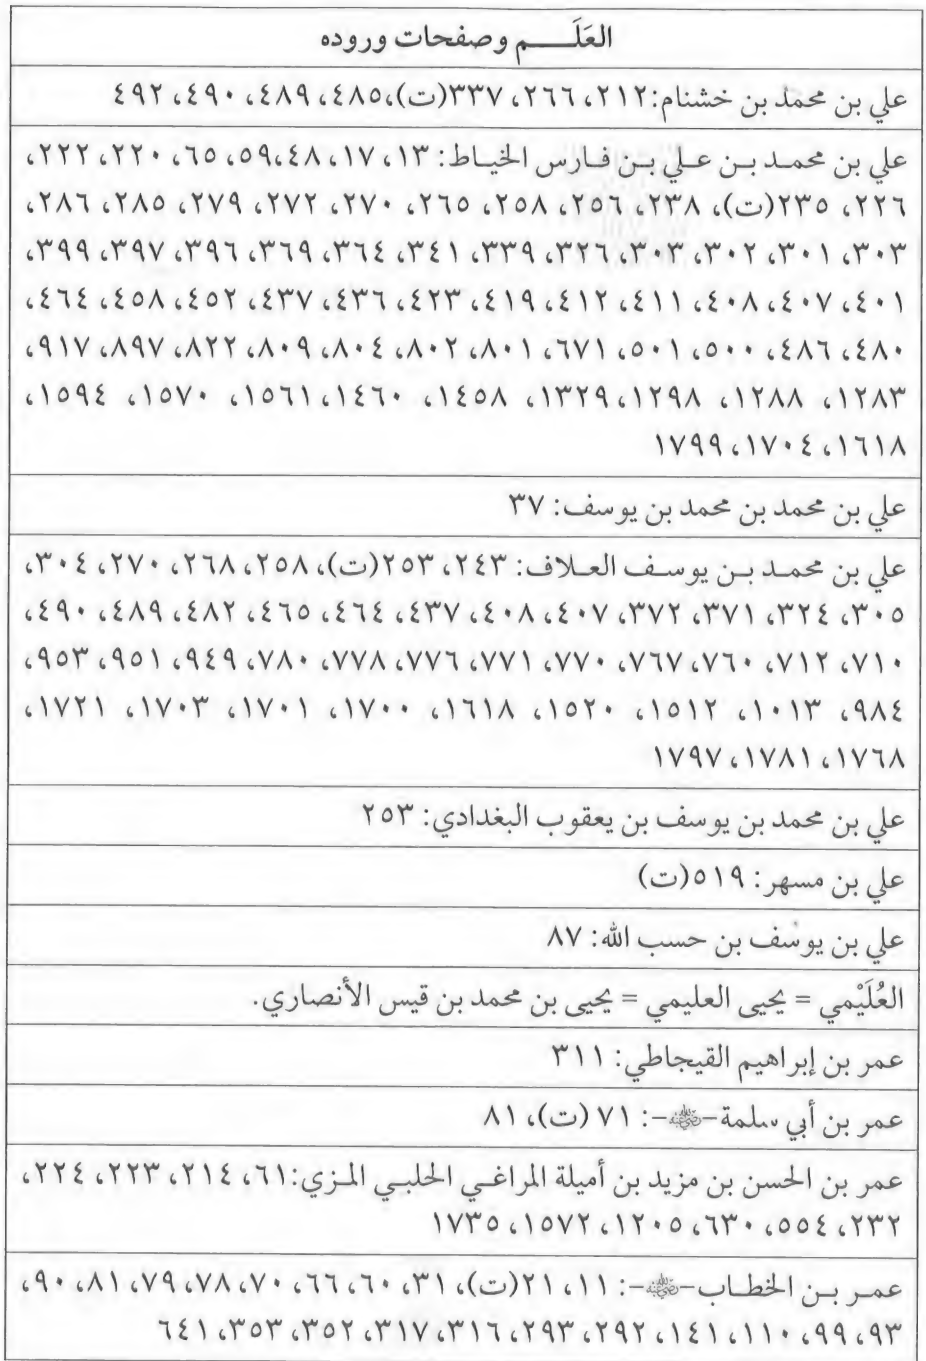 العَلَـــــم وصفحات وروده
علي بن محمد بن خشنام: ٢١٢، ٢٦٦، ٣٣٧(ت)، ٤٨٥، ٤٨٩، ٤٩٠، ٤٩٢
علي بن محمـد بـن عـلي بـن فـارس الخيـاط: ١٣، ١٧، ٤٨، ٥٩، ٦٥، ٢٢٠، ٢٢٢،
٢٢٦، ٢٣٥(ت)، ٢٣٨، ٢٥٦، ٢٥٨، ٢٦٥، ٢٧٠، ٢٧٢، ٢٧٩، ٢٨٥، ٢٨٦،
٣٠٣، ٣٠١، ٣٠٢، ٣٠٣، ٣٢٦، ٣٣٩، ٣٤١، ٣٦٤، ٣٦٩، ٣٩٦، ٣٩٧، ٣٩٩،
٤٠١، ٤٠٧، ٤٠٨، ٤١١، ٤١٢، ٤١٩، ٤٢٣، ٤٣٦، ٤٣٧، ٤٥٢، ٤٥٨، ٤٦٤،
٤٨٠، ٤٨٦، ٥٠٠، ٥٠١، ٦٧١، ٨٠١، ٨٠٢، ٨٠٤، ٨٠٩، ٨٢٢، ٨٩٧، ٩١٧،
١٢٨٣، ١٢٨٨، ١٢٩٨، ١٣٢٩، ١٤٥٨، ١٤٦٠، ١٥٦١، ١٥٧٠، ١٥٩٤،
١٦١٨، ١٧٠٤، ١٧٩٩
علي بن محمد بن محمد بن يوسف: ٣٧
علي بن محمـد بـن يوسـف العـلاف: ٢٤٣، ٢٥٣(ت)، ٢٥٨، ٢٦٨، ٢٧٠، ٣٠٤،
٣٠٥، ٣٢٤، ٣٧١، ٣٧٢، ٤٠٧، ٤٠٨، ٤٣٧، ٤٦٤، ٤٦٥، ٤٨٢، ٤٨٩، ٤٩٠،
٧١٠، ٧١٢، ٧٦٠، ٧٦٧، ٧٧٠، ٧٧١، ٧٧٦، ٧٧٨، ٧٨٠، ٩٤٩، ٩٥١، ٩٥٣،
٩٨٤، ١٠١٣، ١٥١٢، ١٥٢٠، ١٦١٨، ١٧٠٠، ١٧٠١، ١٧٠٣، ١٧٢١،
١٧٦٨، ١٧٨١، ١٧٩٧
علي بن محمد بن يوسف بن يعقوب البغدادي: ٢٥٣
علي بن مسهر: ٥١٩(ت)
علي بن يوسف بن حسب الله: ٨٧
العُلَيْمي = يحيى العليمي = يحيى بن محمد بن قيس الأنصاري.
عمر بن إبراهيم القيجاطي: ٣١١
عمر بن أبي سلمة-رضي الله عنه-: ٧١ (ت)، ٨١
عمر بن الحسن بن مزيد بن أميلة المراغـي الحلبـي المـزي: ٦١، ٢١٤، ٢٢٣، ٢٢٤،
٢٣٢، ٥٥٤، ٦٣٠، ١٢٠٥، ١٥٧٢، ١٧٣٥
عمـر بـن الخطـاب-رضي الله عنه-: ١١، ٢١(ت)، ٣١، ٦٠، ٦٦، ٧٠، ٧٨، ٧٩، ٨١، ٩٠،
٩٣، ٩٩، ١١٠، ١٤١، ٢٩٢، ٢٩٣، ٣١٦، ٣١٧، ٣٥٢، ٣٥٣، ٦٤١